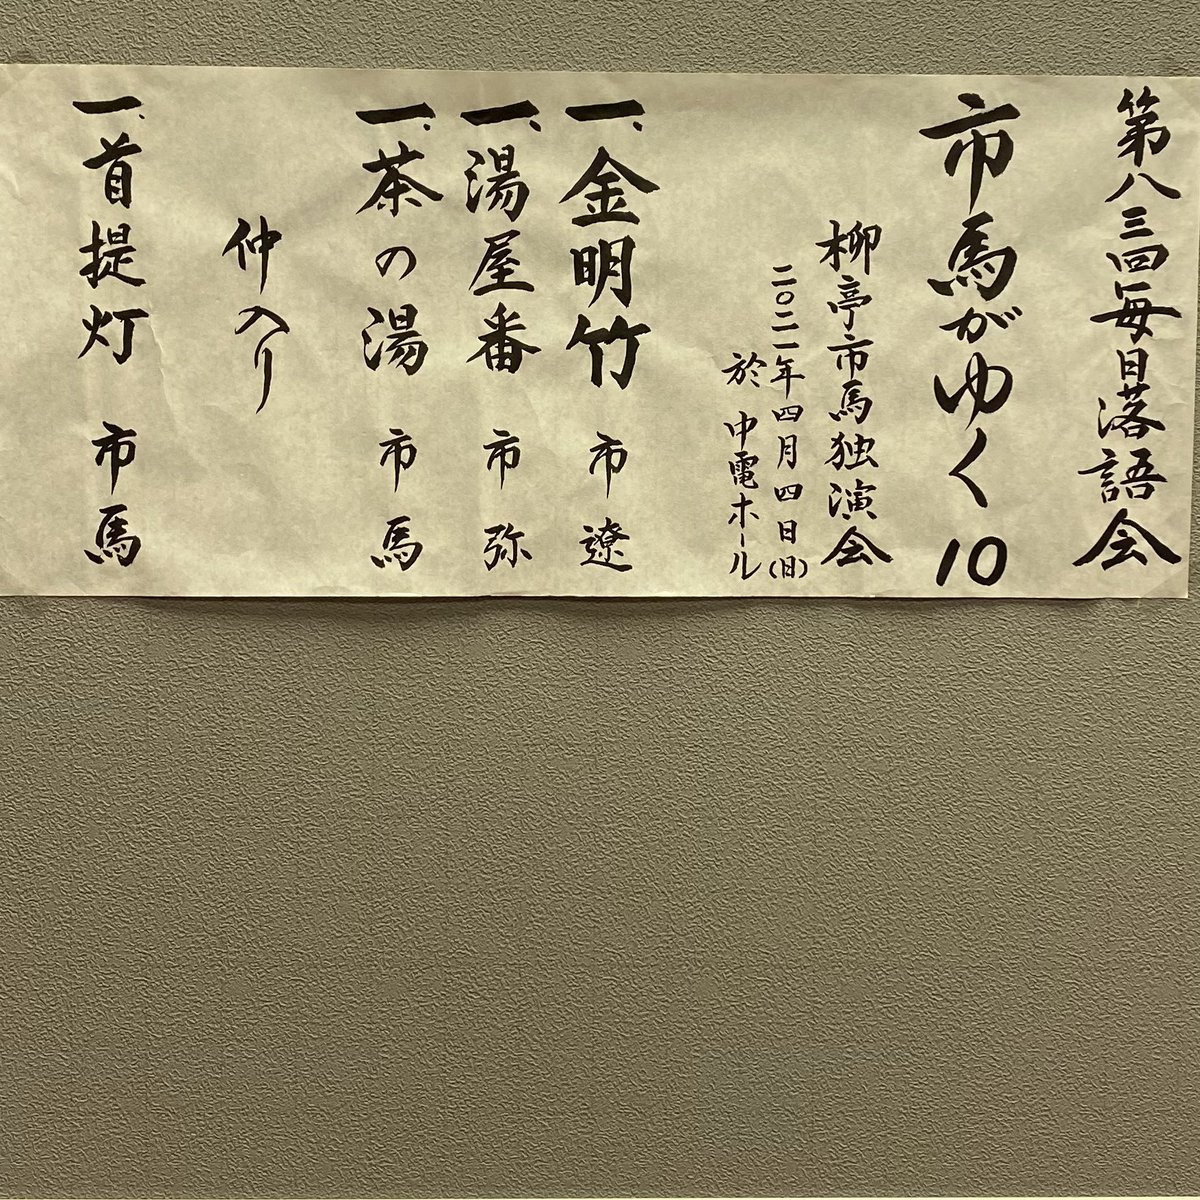 第八三回毎日落語会
市馬がゆく10
柳亭市馬独演会
二〇二一年四月四日(日)
於 中電ホール
一、金明竹 市遼
一、湯屋番 市弥
一、茶の湯 市馬
仲入り
一、首提灯 市馬